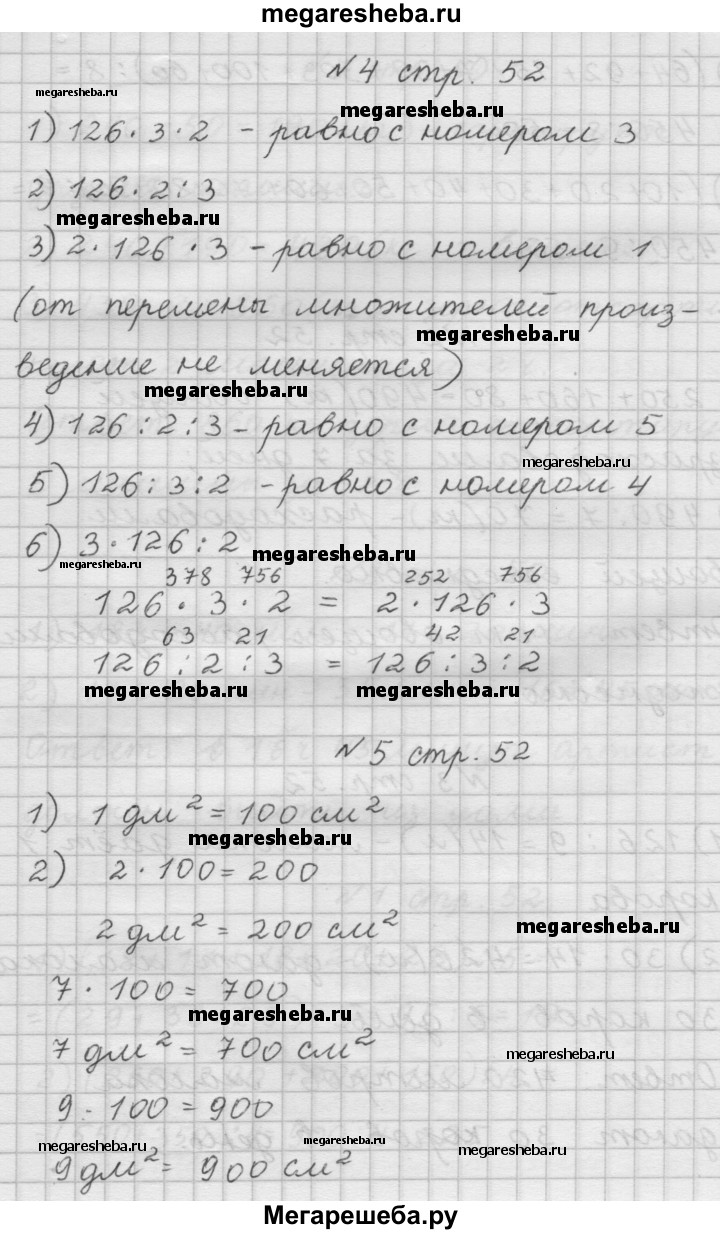 megaresheba.ru
N 4 стр. 52
megaresheba.ru
megaresheba.ru
1) 126 · 3 · 2 - равно с номером 3
2) 126 · 2 : 3
megaresheba.ru
3) 2 · 126 · 3 - равно с номером 1
(от перемены множителей произ-
megaresheba.ru
ведение не меняется)
megaresheba.ru
4) 126 : 2 : 3 - равно с номером 5
megaresheba.ru
5) 126 : 3 : 2 - равно с номером 4
6) 3 · 126 : 2
megaresheba.ru
megaresheba.ru
378 756 252 756
126 · 3 · 2 = 2 · 126 · 3
63 21 42 21
126 : 2 : 3 = 126 : 3 : 2
megaresheba.ru megaresheba.ru
N 5 стр. 52
1) 1 дм² = 100 см²
megaresheba.ru
2) 2 · 100 = 200
2 дм² = 200 см²
megaresheba.ru
7 · 100 = 700
megaresheba.ru
7 дм² = 700 см²
megaresheba.ru
9 · 100 = 900
megaresheba.ru megaresheba.ru megaresheba.ru
9 дм² = 900 см²
Мегарешеба.ру